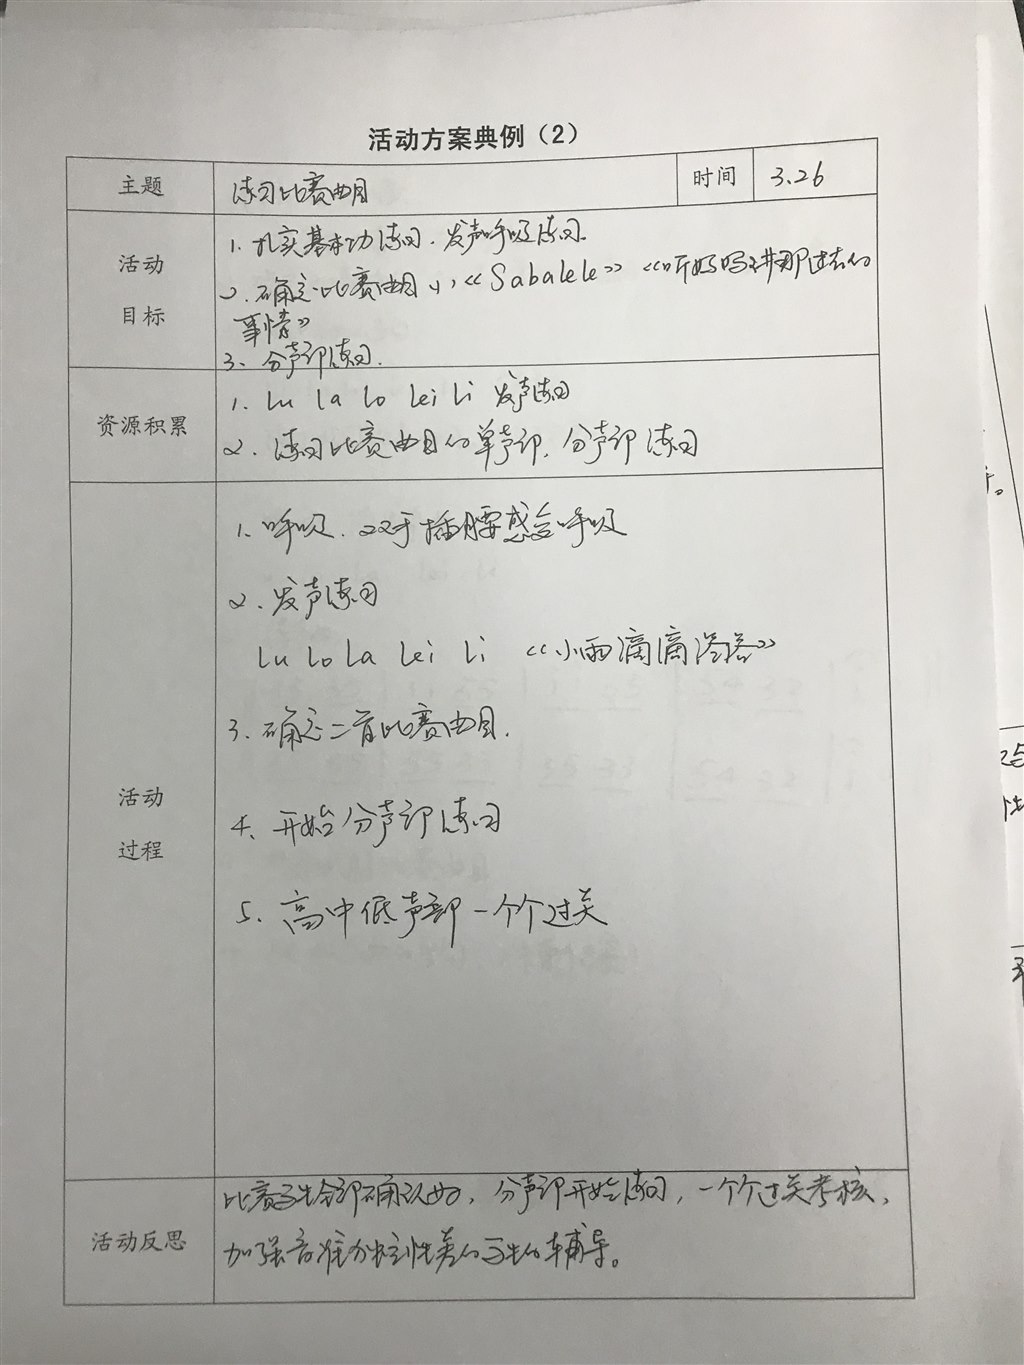 活动方案典例（2）
主题 练习比赛曲目 时间 3.26
活动目标
1. 扎实基本功练习. 发声呼吸练习.
2. 确定比赛曲目 《Sabalele》《听妈妈讲那过去的
事情》
3. 分声部练习.
资源积累
1. Lu La Lo Lei Li 发声练习
2. 练习比赛曲目的单声部, 分声部练习
活动过程
1. 呼吸. 双手插腰感受呼吸
2. 发声练习
Lu Lo La Lei Li 《小雨滴滴答答》
3. 确定二首比赛曲目.
4. 开始分声部练习
5. 高中低声部一个个过关
活动反思
比赛学生全部确认好, 分声部开始练习, 一个个过关考核,
加强音准 差的学生的辅导。